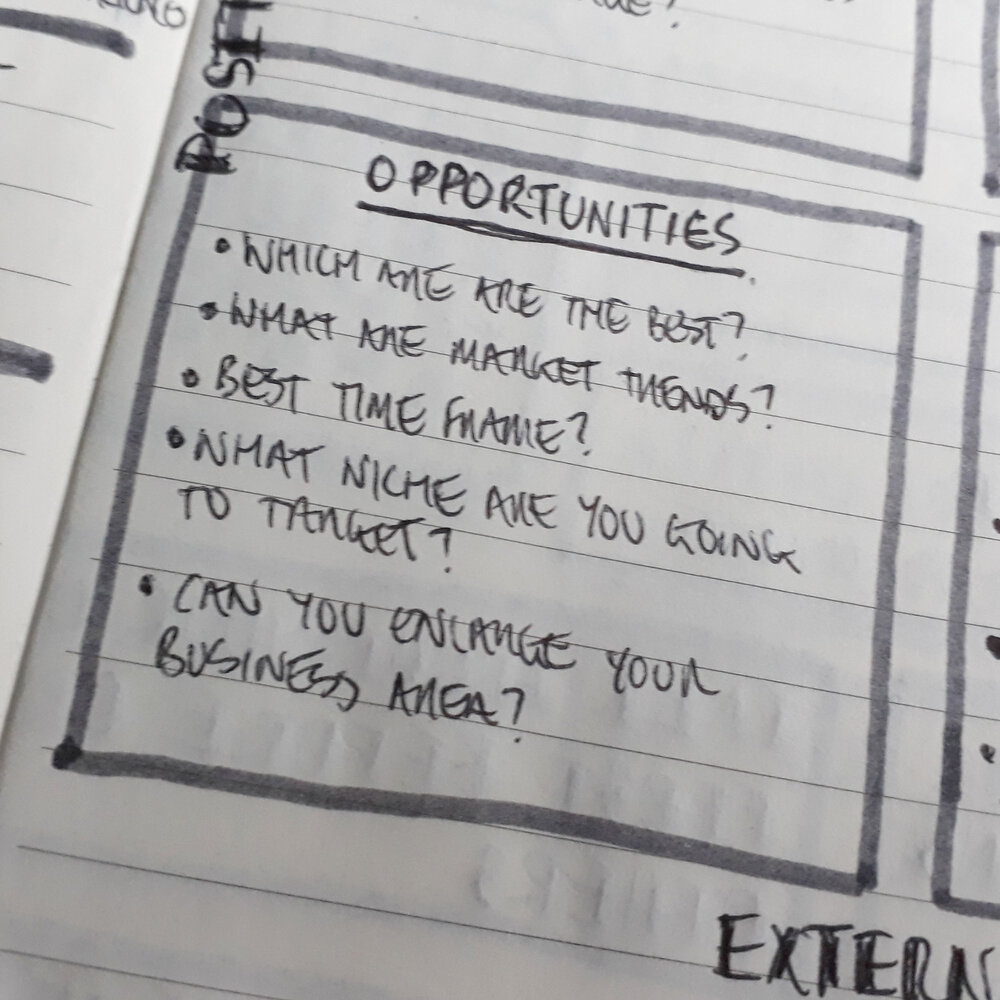 POSIT
OPPORTUNITIES
• WHICH ARE ARE THE BEST?
• WHAT ARE MARKET TRENDS?
• BEST TIME FRAME?
• WHAT NICHE ARE YOU GOING
TO TARGET?
• CAN YOU ENLARGE YOUR
BUSINESS AREA?
EXTERN